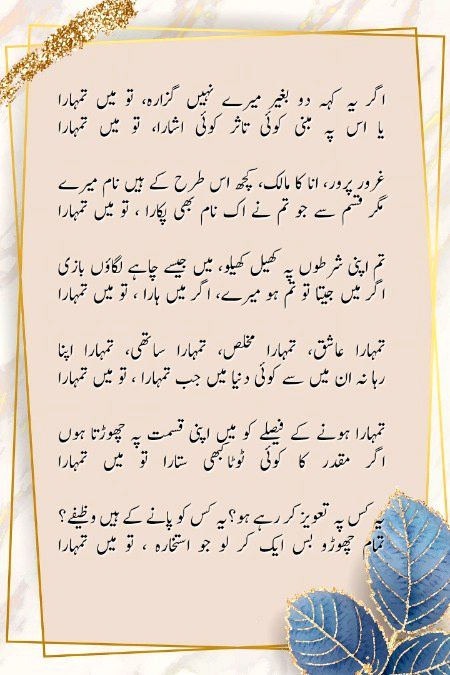 اگر یہ کہہ دو بغیر میرے نہیں گزارہ، تو میں تمہارا
یا اس پہ مبنی کوئی تاثر کوئی اشارا، تو میں تمہارا
غرور پرور، انا کا مالک، کچھ اس طرح کے ہیں نام میرے
مگر قسم سے جو تم نے اک نام بھی پکارا ، تو میں تمہارا
تم اپنی شرطوں پہ کھیل کھیلو، میں جیسے چاہے لگاؤں بازی
اگر میں جیتا تو تم ہو میرے، اگر میں ہارا ، تو میں تمہارا
تمہارا عاشق، تمہارا مخلص، تمہارا ساتھی، تمہارا اپنا
رہا نہ ان میں سے کوئی دنیا میں جب تمہارا ، تو میں تمہارا
تمہارا ہونے کے فیصلے کو میں اپنی قسمت پہ چھوڑتا ہوں
اگر مقدر کا کوئی ٹوٹا کبھی ستارا تو میں تمہارا
یہ کس پہ تعویز کر رہے ہو؟ یہ کس کو پانے کے ہیں وظیفے؟
تمام چھوڑو بس ایک کر لو جو استخارہ ، تو میں تمہارا